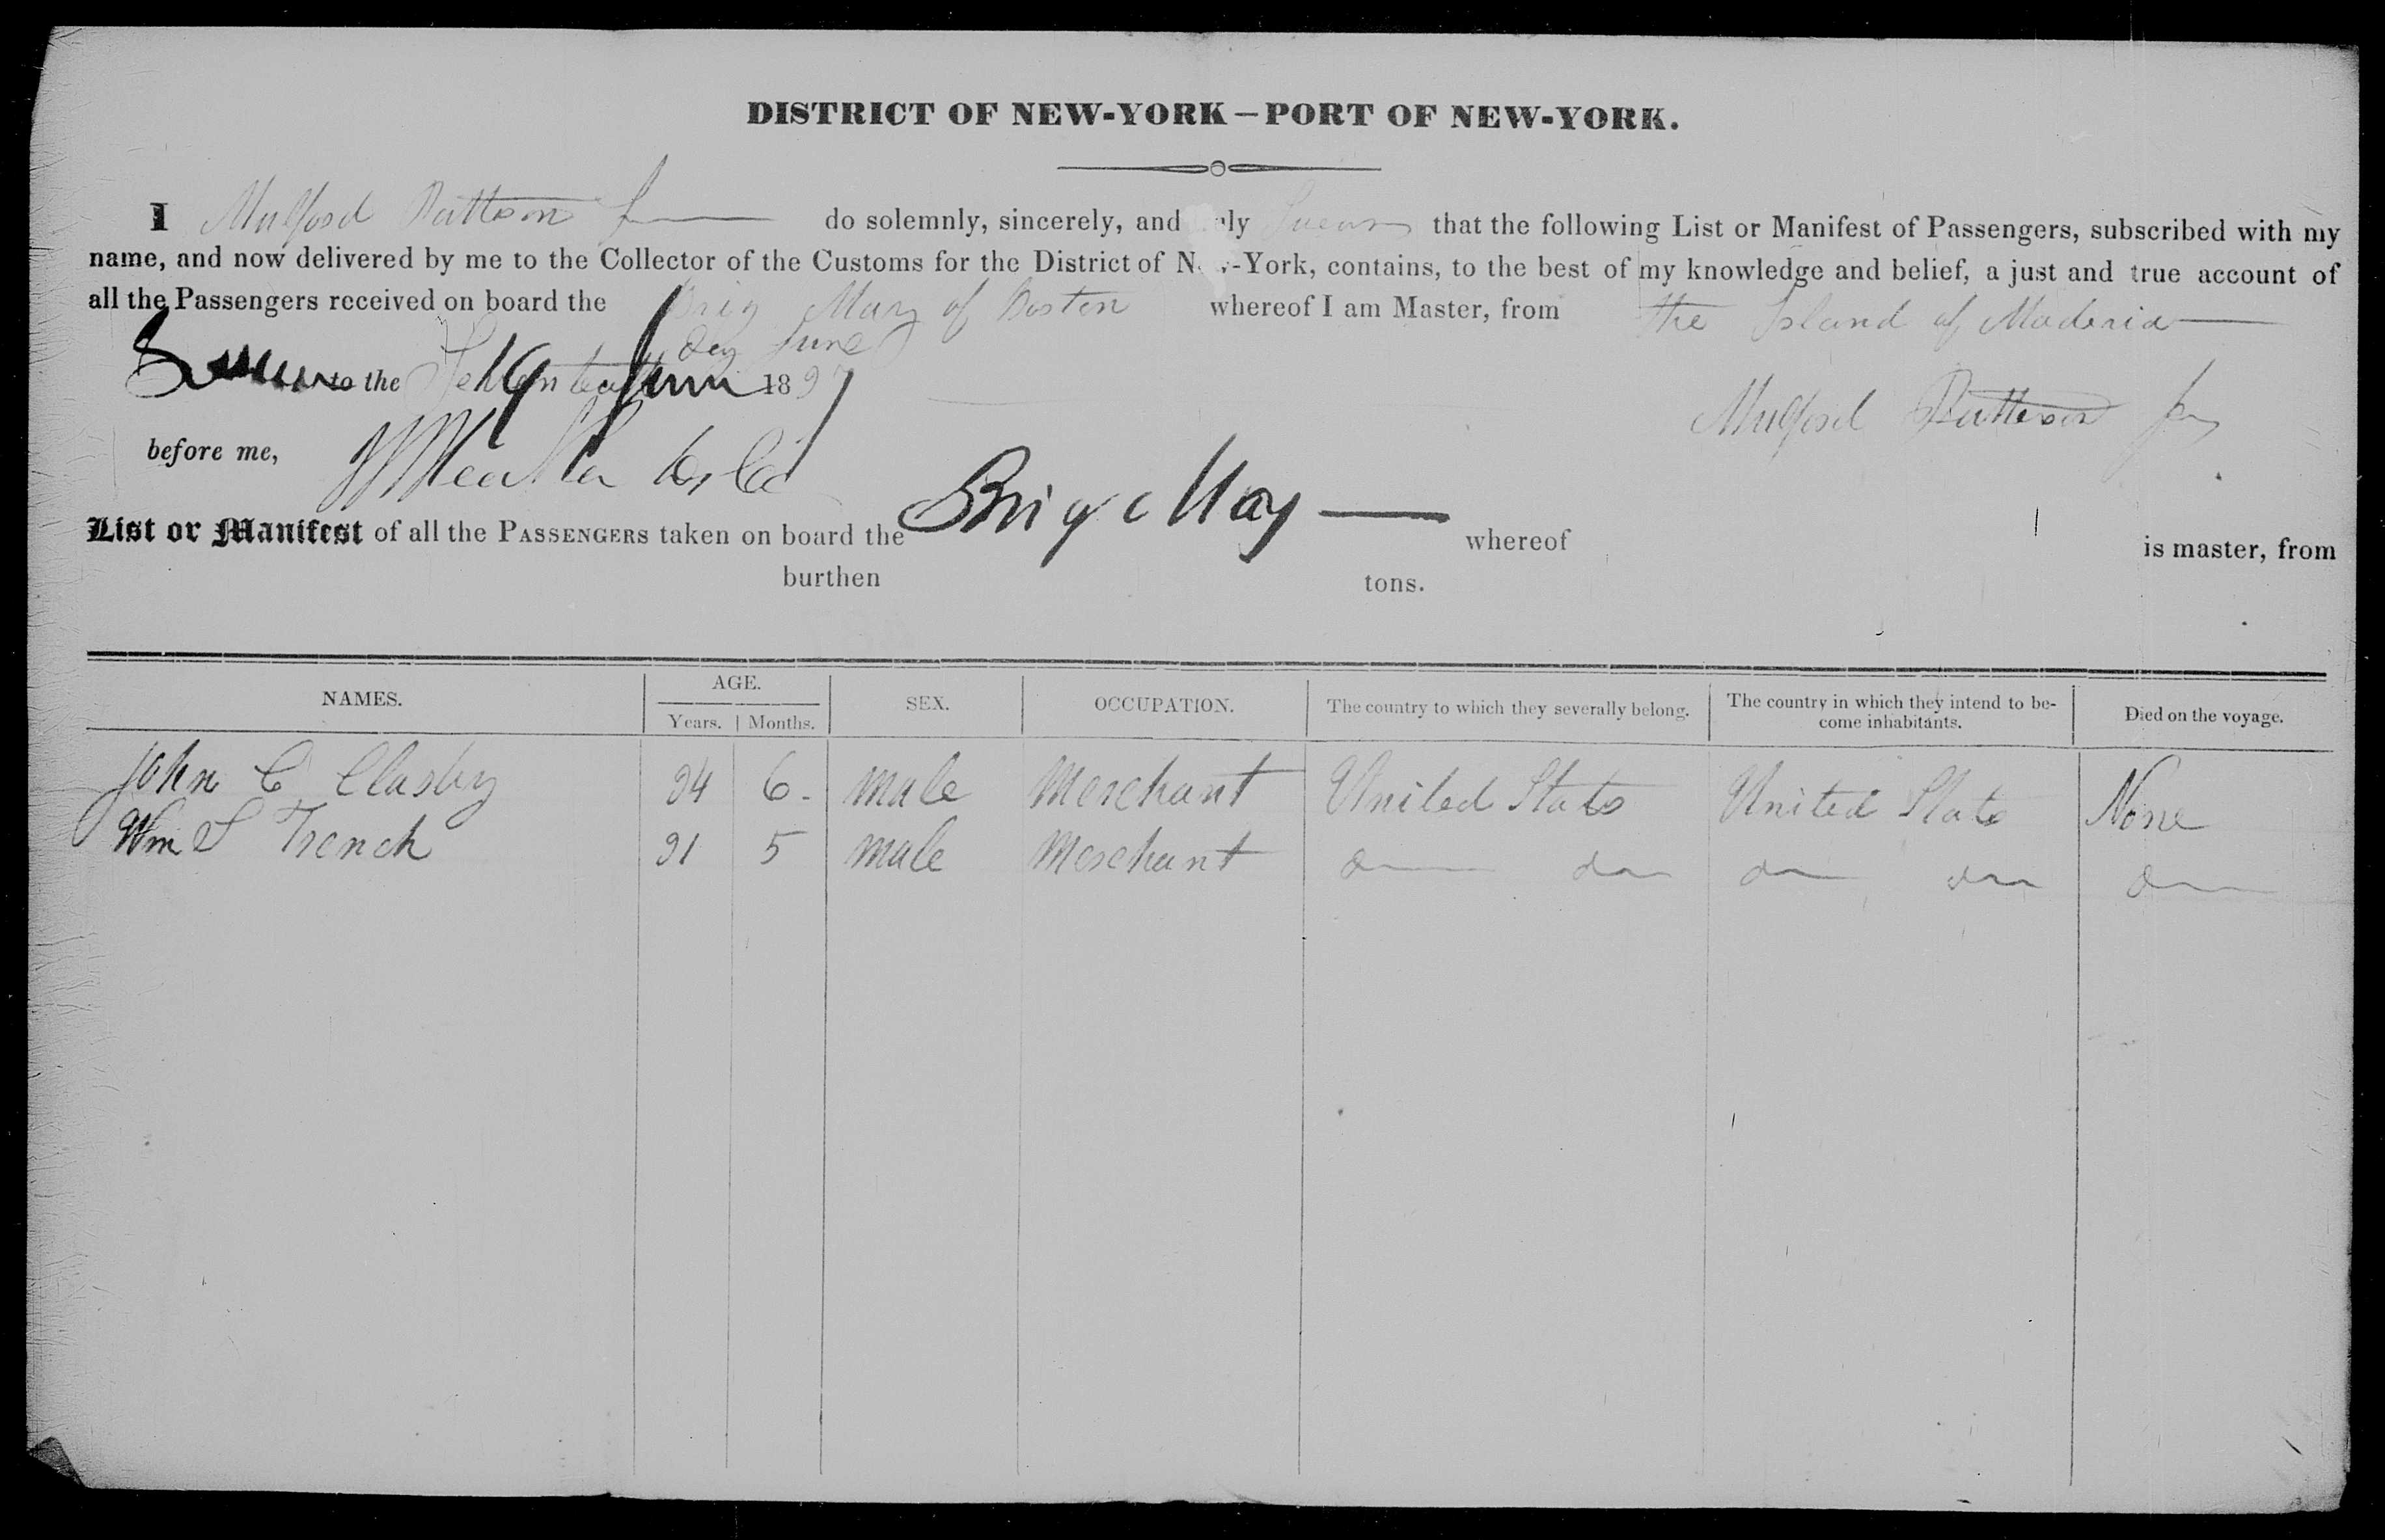 DISTRICT OF NEW-YORK – PORT OF NEW-YORK.
I Mulford Patterson Jr do solemnly, sincerely, and ly Swear that the following List or Manifest of Passengers, subscribed with my
name, and now delivered by me to the Collector of the Customs for the District of N -York, contains, to the best of my knowledge and belief, a just and true account of
all the Passengers received on board the Brig Mary of Boston whereof I am Master, from the Island of Maderia
day June
to the 18
Mulford Patterson Jr
before me,
List or Manifest of all the PASSENGERS taken on board the Brig Mary whereof is master, from
burthen tons.
NAMES. AGE. SEX. OCCUPATION. The country to which they severally belong. The country in which they intend to be-come inhabitants. Died on the voyage.
Years. Months.
John C Clasby 24 6 male Merchant United States United States None
Wm S French 21 5 male Merchant do do do do do